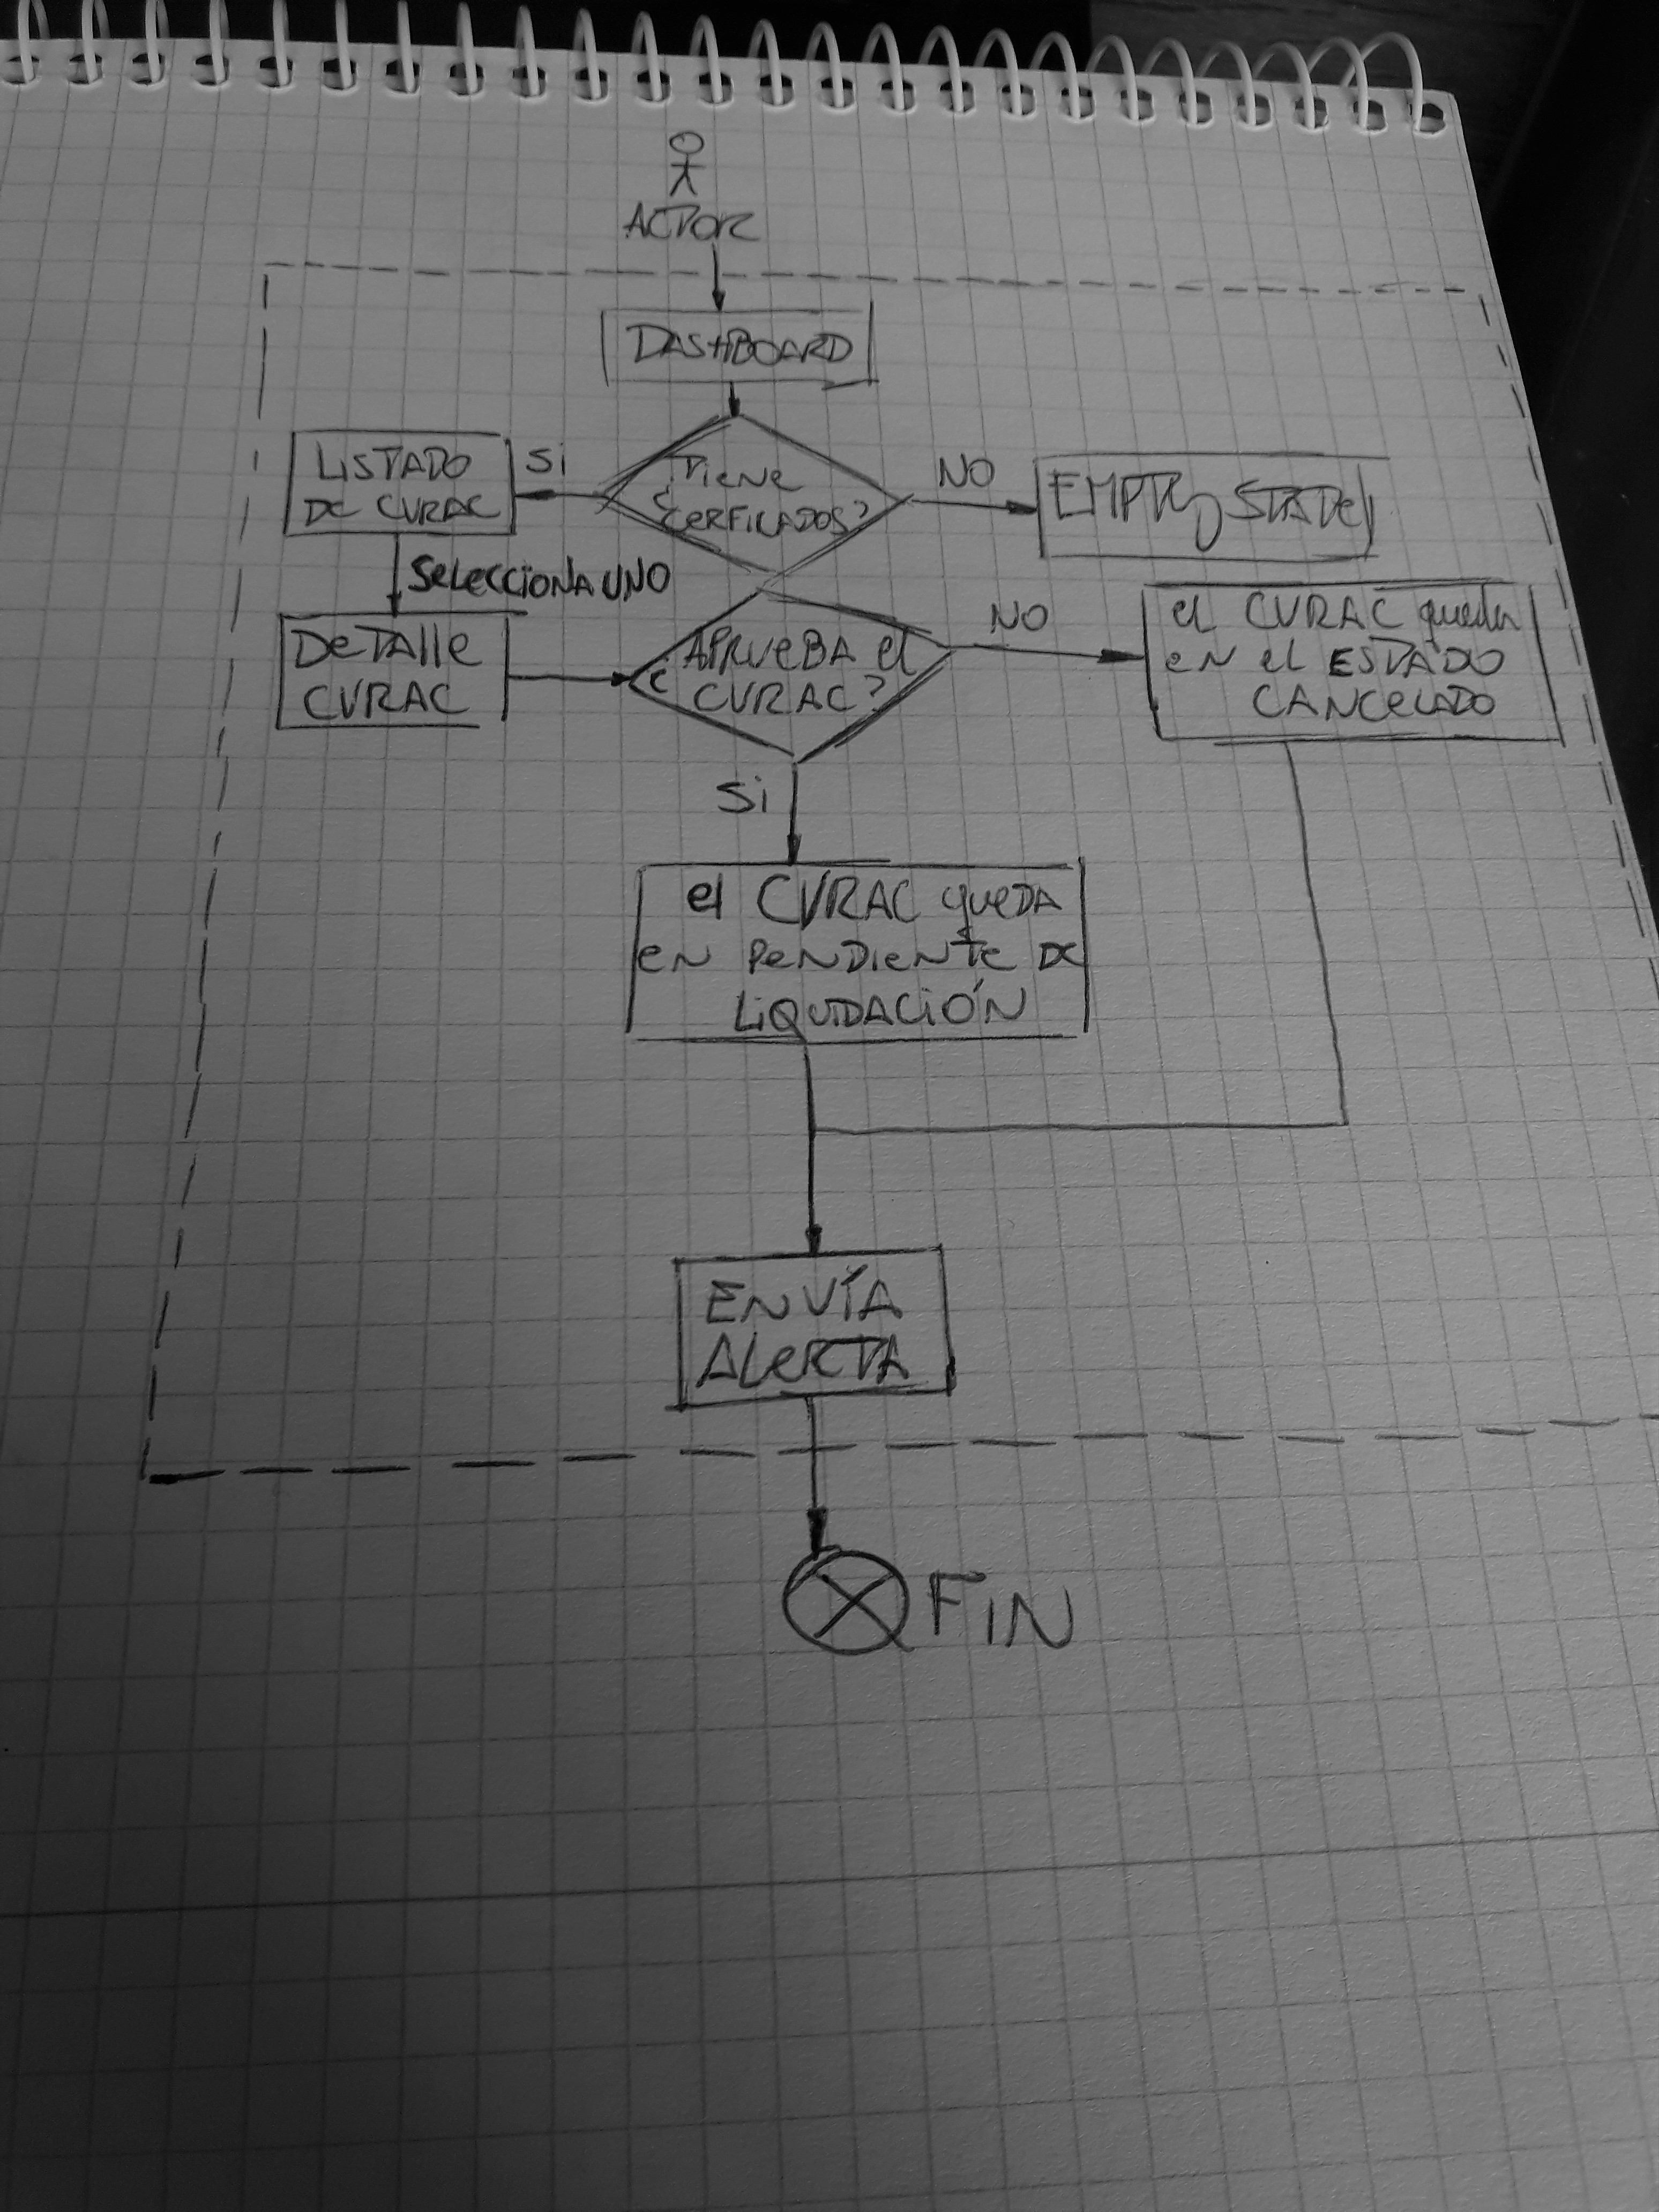 ACTOR
DASHBOARD
¿Tiene
cerficados?
Si
LISTADO
DE CVRAC
NO
EMPTY STATE
Selecciona UNO
DeTalle
CVRAC
¿APRUEBA el
CVRAC?
NO
el CVRAC queda
en el ESTADO
CANCELADO
Si
el CVRAC queda
en Pendiente de
Liquidación
ENVÍA
ALERTA
FIN